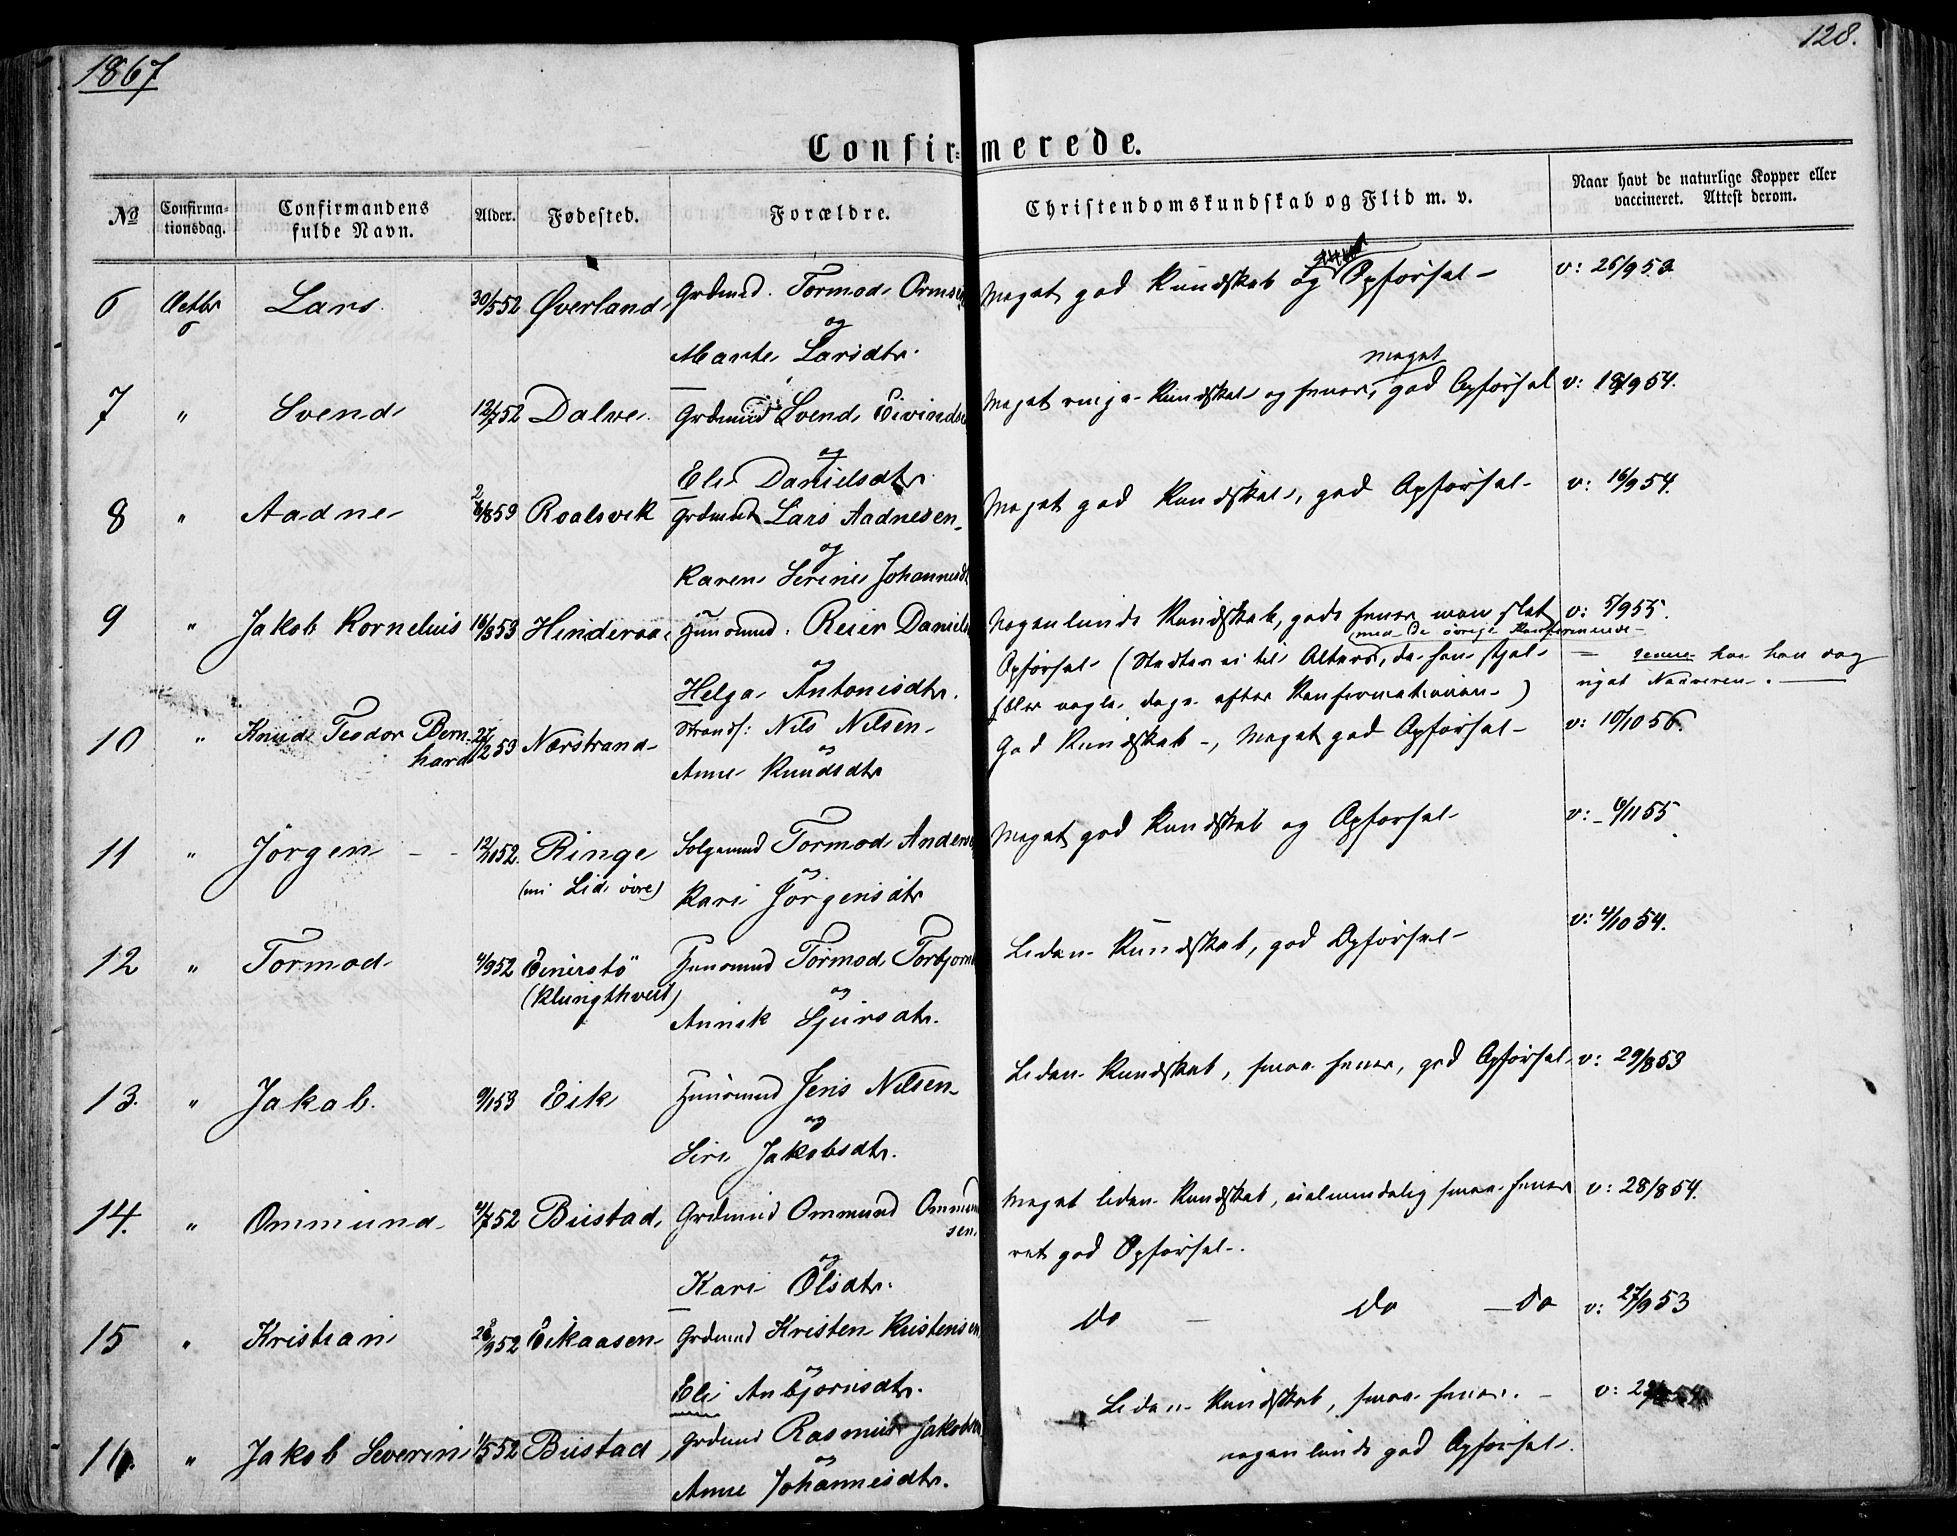 1867
128.
Confirmerede.
No
Confirmationsdag.
Confirmandens fulde Navn.
Alder.
Fødested.
Forældre.
Christendomskundskab og Flid m. v.
Naar havt de naturlige Kopper eller vaccineret. Attest derom.
6 Octbr 6 Lars 30/5 52 Øverland Grdmnd. Tormod Ormsen Meget god Kundskab og Opførsel v: 26/9 53
og
Marte Larsdtr.
meget
7 " Svend 12/7 52 Dalve Grdmnd Svend Eivindsen Meget ringe Kundskab og Evner, god Opførsel v: 18/9 54.
og
Eli Danielsdtr.
8 " Aadne Roalsvik Grdmnd Lars Aadnesen Meget god Kundskab, god Opførsel v: 16/9 54.
og
Karen Serine Johannesdt
9 " Jakob Kornelius 16/3 53 Hinderaa Huusmnd. Reier Daniels Nogenlunde Kundskab, gode Evner men slet v: 5/9 55.
med de øvrige Konfirmerede
og
Opførsel (Stedtes ei til Alters, da han stjal senere har han dog
Helga Antonisdtr.
nogle dage efter Konfirmationen) nydt Nadveren.
10 " Knud Teodor Bernhard 27/2 53 Nærstrand Strands: Nils Nilsen God Kundskab, Meget god Opførsel v: 10/10 56
og
Anne Knudsdtr
11 " Jörgen 12/10 52. Ringe Tormod Anders Meget god Kundskab og Opførsel v: 6/11 55
(nu Lid övre)
og
Kari Jörgensdtr
12 " Tormod 4/9 52 Einerstö Huusmnd Tormod Torbjorn Liden Kundskab, god Opførsel v: 4/10 54.
(Klungtveit)
og
Annik Sjursdtr.
13. " Jakob. 9/1 53 Eik Huusmnd Jens Nilsen Liden Kundskab, smaa Evner, god Opførsel v: 29/8 53
og
Siri Jakobsdtr.
14. " Ommund 4/7 52 Bustad Grdmnd Ommund Ommundsen Meget liden Kundskab, ualmindelig smaa Evner v: 28/8 54.
ret god Opførsel.
og
Kari Olsdtr.
15 " Kristian 28/9 52 Eikaasen Grdmnd Kristen Kristensen do do do v: 27/9 53
og
Eli Anbjornsdtr.
16. " Jakob Severin 1/5 52 Bustad Grdmnd Rasmus Jakobsen Liden Kundskab, smaa Evner.
nogenlunde god Opførsel.
og
Anne Johannesdtr.